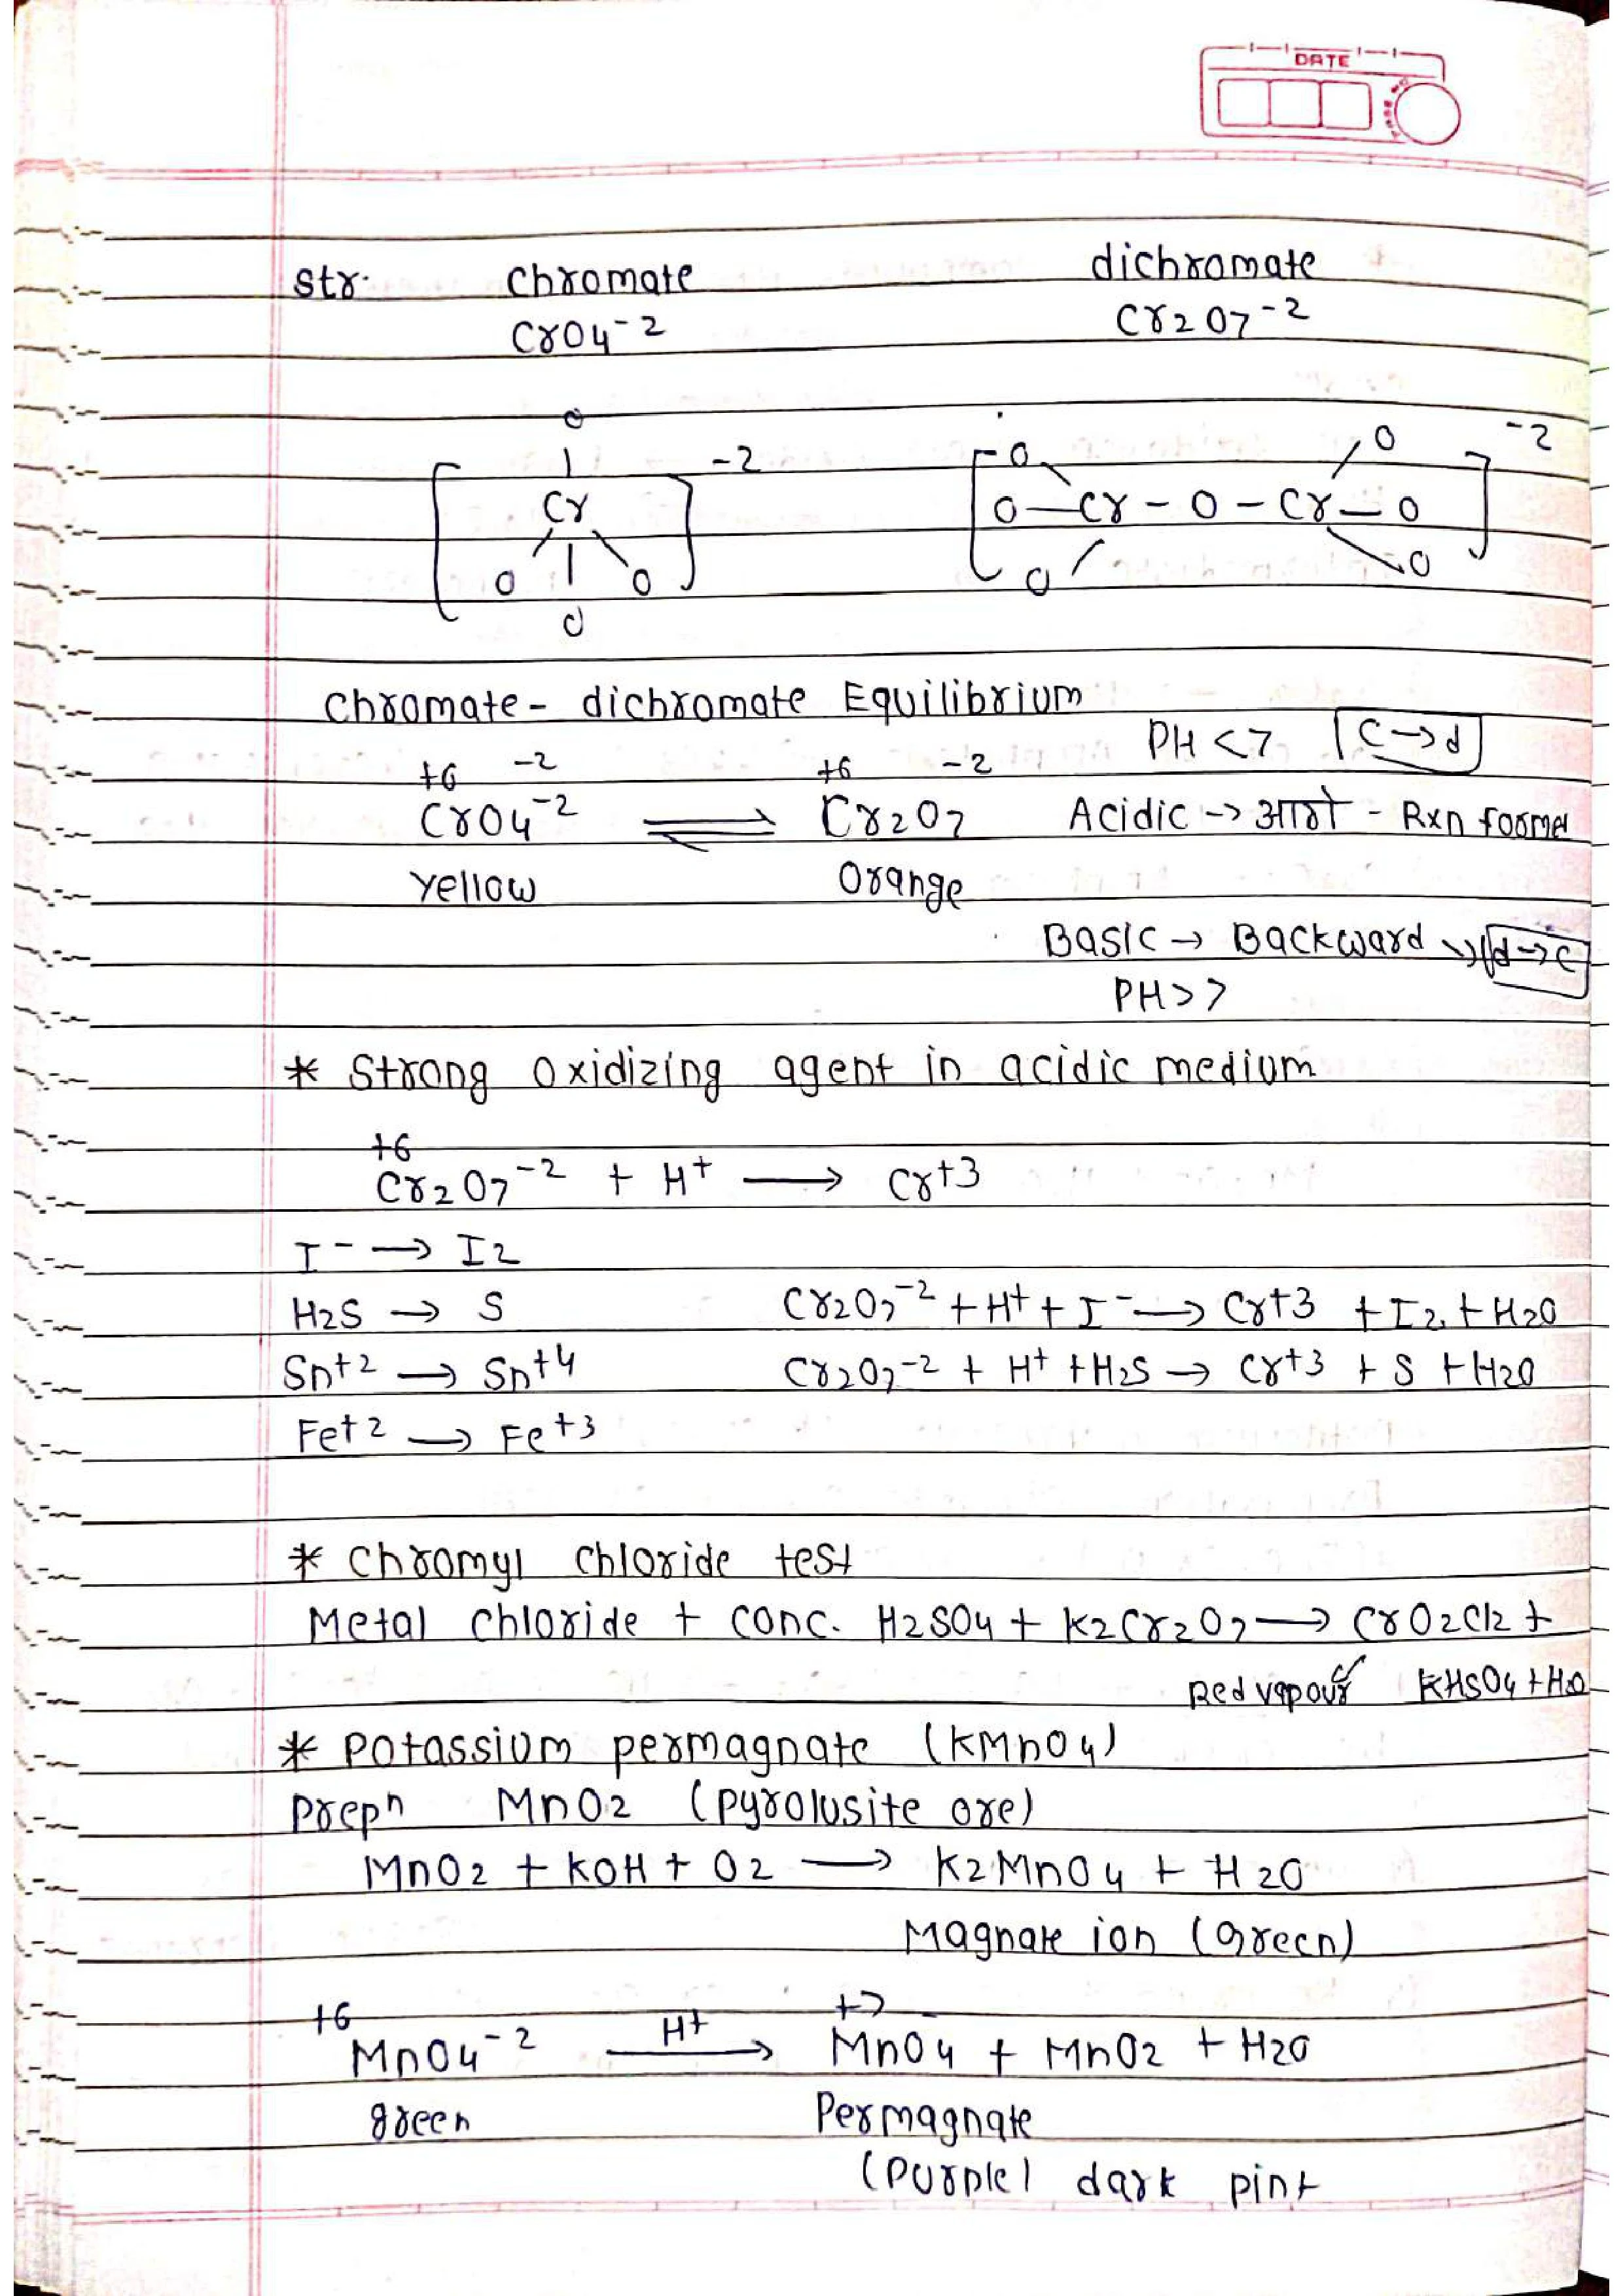 DATE
str. Chromate dichromate
CrO4-2 Cr2O7-2
O
-2 O O -2
Cr O Cr - O - Cr O
O O O O
O
Chromate - dichromate Equilibrium
PH <7 C→d
+6 -2 +6 -2
CrO4-2 ⇌ Cr2O7 Acidic → आगे - Rxn forme
Yellow Orange
Basic → Backward → d→c
PH>7
* Strong Oxidizing agent in acidic medium
+6
Cr2O7-2 + H+ → Cr+3
I- → I2
H2S → S Cr2O7-2 + H+ + I- → Cr+3 + I2 + H2O
Sn+2 → Sn+4 Cr2O7-2 + H+ + H2S → Cr+3 + S + H2O
Fe+2 → Fe+3
* Chromyl Chloride test
Metal Chloride + Conc. H2SO4 + K2Cr2O7 → CrO2Cl2 +
Red vapour KHSO4 + H2O
* Potassium permagnate (KMnO4)
Prepn MnO2 (pyrolusite ore)
MnO2 + KOH + O2 → K2MnO4 + H2O
Magnate ion (green)
+6 H+ +7
MnO4-2 → MnO4- + MnO2 + H2O
green Permagnate
(Purple) dark pint